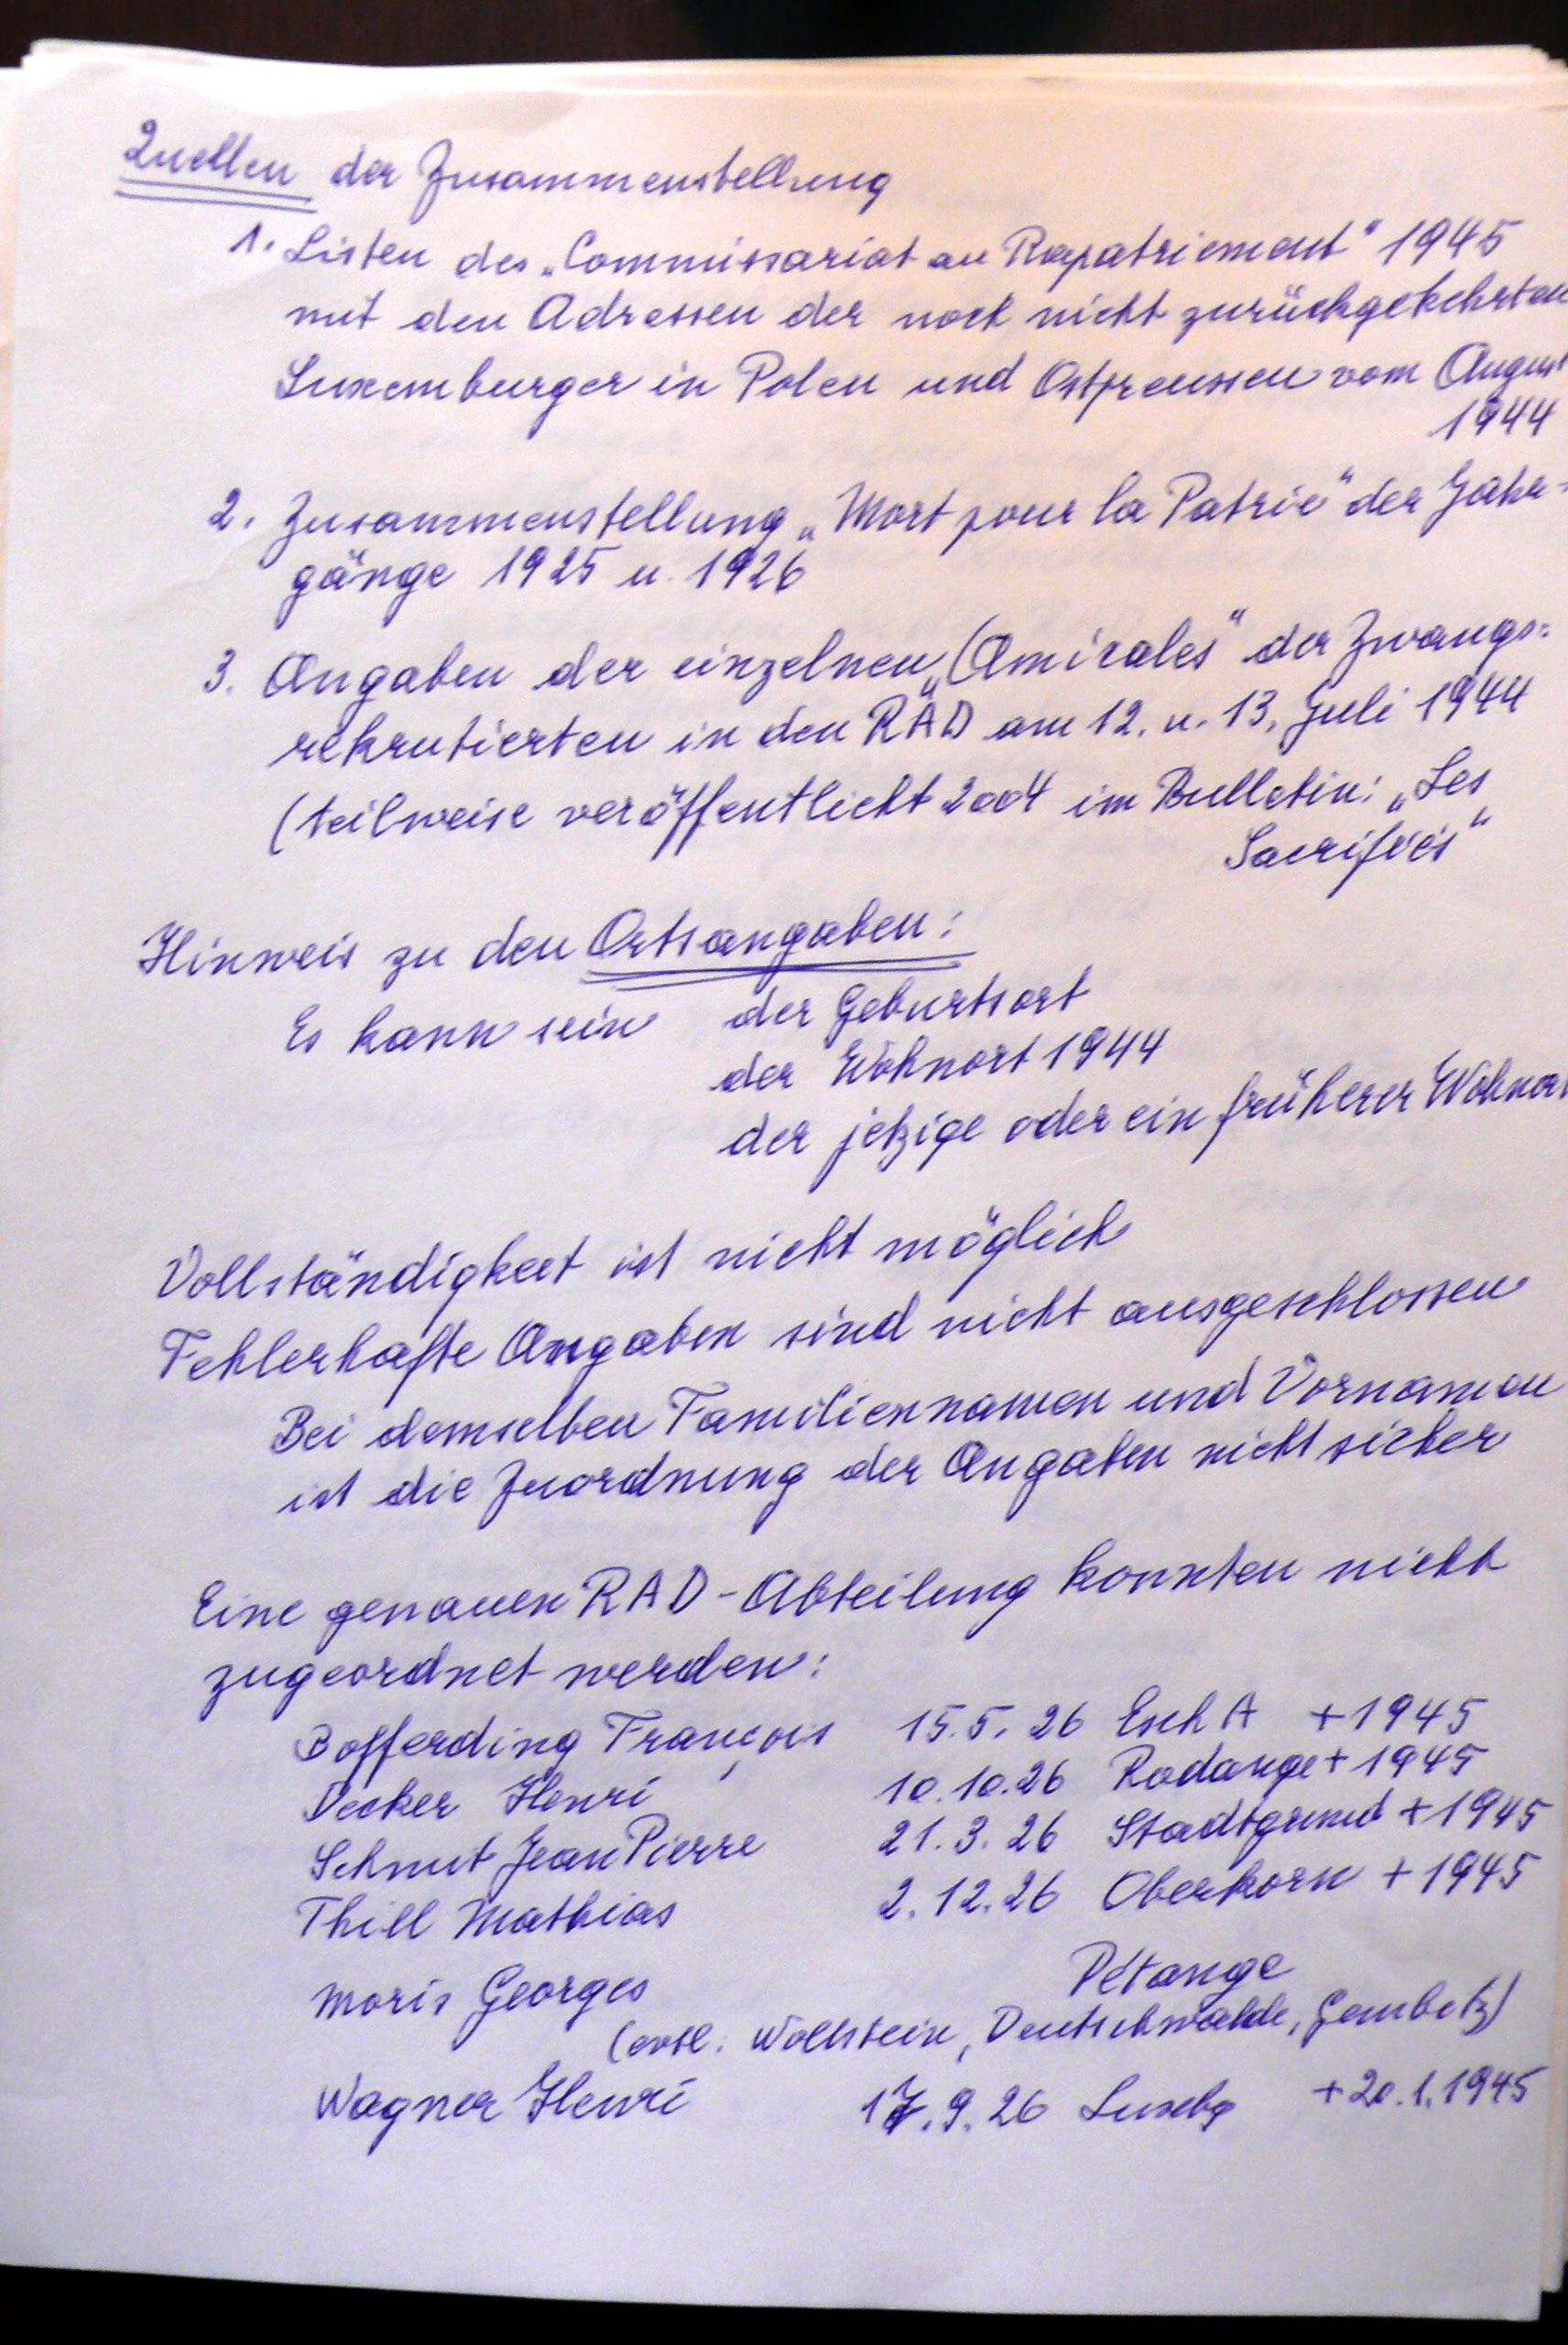 Quellen der Zusammenstellung
1. Listen des „Commissariat au Rapatriement" 1945
mit den Adressen der noch nicht zurückgekehrten
Luxemburger in Polen und Ostpreussen vom August
1944
2. Zusammenstellung „Mort pour la Patrie" der Jahr-
gänge 1925 u. 1926
3. Angaben der einzelnen „Amicales" der Zwangs=
rekrutierten in den RAD am 12. u. 13. Juli 1944
(teilweise veröffentlicht 2004 im Bulletin: „Les
Sacrifiés"
Hinweis zu den Ortsangaben:
Es kann sein der Geburtsort
der Wohnort 1944
der jetzige oder ein früherer Wohnor
Vollständigkeit ist nicht möglich
Fehlerhafte Angaben sind nicht ausgeschlossen
Bei demselben Familiennamen und Vornamen
ist die Zuordnung der Angaben nicht sicher
Eine genauen RAD-Abteilung konnten nicht
zugeordnet werden:
Bofferding François 15.5.26 Esch A +1945
Decker Henri 10.10.26 Rodange +1945
Schmit Jean Pierre 21.3.26 Stadtgrund +1945
Thill Mathias 2.12.26 Oberkorn +1945
Moris Georges Pétange
(evtl. Wollstein, Deutschwalde, Gembitz)
Wagner Henri 17.9.26 Luxbg +20.1.1945